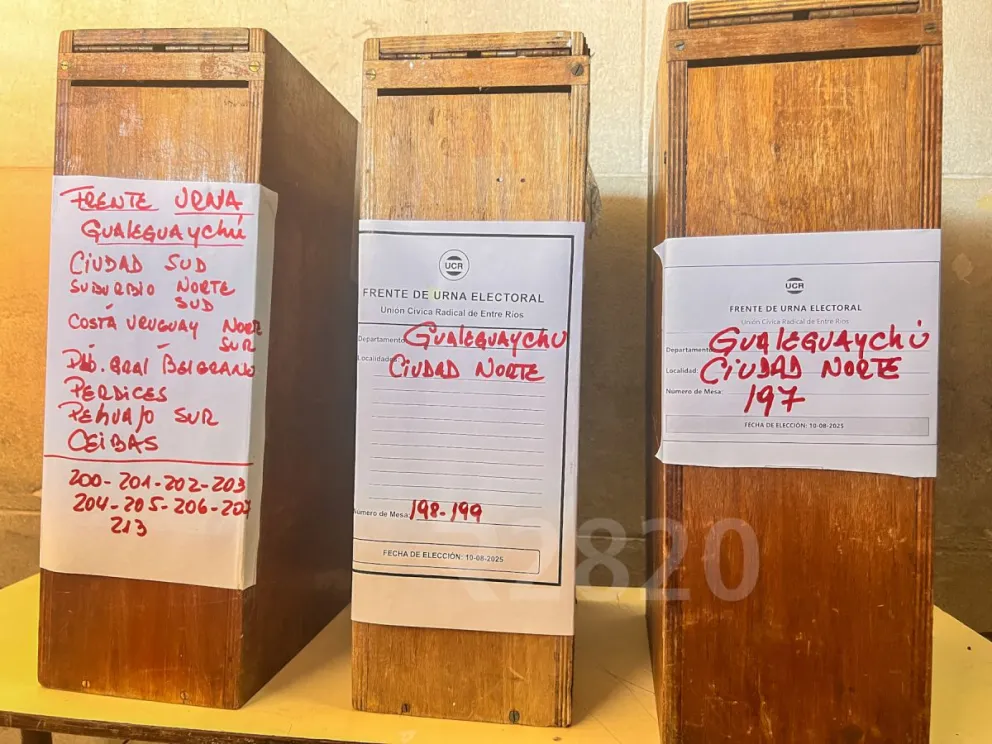 FRENTE URNA
GUALEGUAYCHÚ
CIUDAD SUD
SUBURBIO NORTE
SUD
COSTA URUGUAY NORTE
" " SUR
Pdo. GRAL BELGRANO
PERDICES
PEHUAJO SUR
CEIBAS
200-201-202-203
204-205-206-207
213
UCR
FRENTE DE URNA ELECTORAL
Unión Cívica Radical de Entre Ríos
Departamento: GUALEGUAYCHÚ
Localidades: CIUDAD NORTE
Número de Mesa: 198-199
FECHA DE ELECCIÓN: 10-08-2025
UCR
FRENTE DE URNA ELECTORAL
Unión Cívica Radical de Entre Ríos
Departamento: GUALEGUAYCHÚ
Localidad: CIUDAD NORTE
Número de Mesa: 197
FECHA DE ELECCIÓN: 10-08-2025
2820